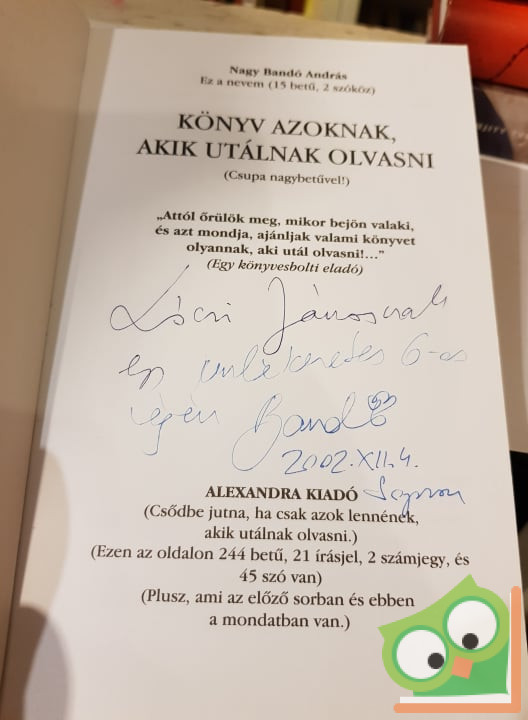 Nagy Bandó András
Ez a nevem (15 betű, 2 szóköz)
KÖNYV AZOKNAK,
AKIK UTÁLNAK OLVASNI
(Csupa nagybetűvel!)
„Attól őrülök meg, mikor bejön valaki,
és azt mondja, ajánljak valami könyvet
olyannak, aki utál olvasni!…”
(Egy könyvesbolti eladó)
Jánosnak
egy emlékezetes 6-os
végén Bandó
2002.XII.4.
Sopron
ALEXANDRA KIADÓ
(Csődbe jutna, ha csak azok lennének,
akik utálnak olvasni.)
(Ezen az oldalon 244 betű, 21 írásjel, 2 számjegy, és
45 szó van)
(Plusz, ami az előző sorban és ebben
a mondatban van.)